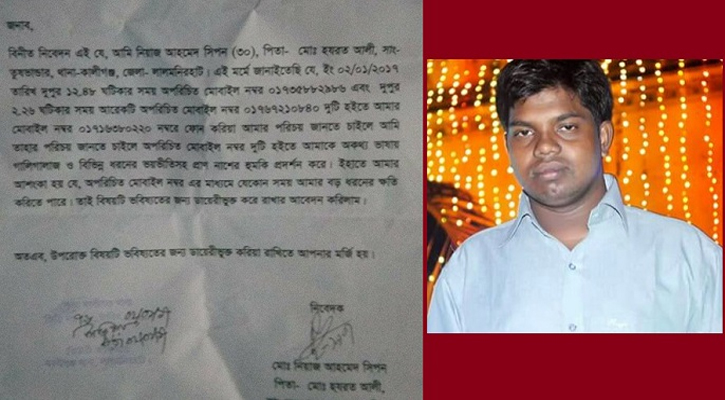 জনাব,
বিনীত নিবেদন এই যে, আমি নিয়াজ আহমেদ সিপন (৩০), পিতা- মোঃ হযরত আলী, সাং-
তুষভান্ডার, থানা-কালীগঞ্জ, জেলা- লালমনিরহাট। এই মর্মে জানাইতেছি যে, ইং ০২/০১/২০১৭
তারিখ দুপুর ১২.৪৮ ঘটিকার সময় অপরিচিত মোবাইল নম্বর ০১৭৩৫৮৮২৯৮৬ এবং দুপুর
২.২৬ ঘটিকার সময় আরেকটি অপরিচিত মোবাইল নম্বর ০১৭৬৭২১০৮৪০ দুটি হইতে আমার
মোবাইল নম্বর ০১৭১৬৩৮০২২০ নম্বরে ফোন করিয়া আমার পরিচয় জানতে চাইলে আমি
তাহার পরিচয় জানতে চাইলে অপরিচিত মোবাইল নম্বর দুটি হইতে আমাকে অকথ্য ভাষায়
গালিগালাজ ও বিভিন্ন ধরনের ভয়ভীতিসহ প্রাণ নাশের হুমকি প্রদর্শন করে। ইহাতে আমার
আশংকা হয় যে, অপরিচিত মোবাইল নম্বর এর মাধ্যমে যেকোন সময় আমার বড় ধরনের ক্ষতি
করিতে পারে। তাই বিষয়টি ভবিষ্যতের জন্য ডায়েরীভুক্ত করে রাখার আবেদন করিলাম।
অতএব, উপরোক্ত বিষয়টি ভবিষ্যতের জন্য ডায়েরীভুক্ত করিয়া রাখিতে আপনার মর্জি হয়।
নিবেদক
মোঃ নিয়াজ আহমেদ সিপন
পিতা- মোঃ হযরত আলী,